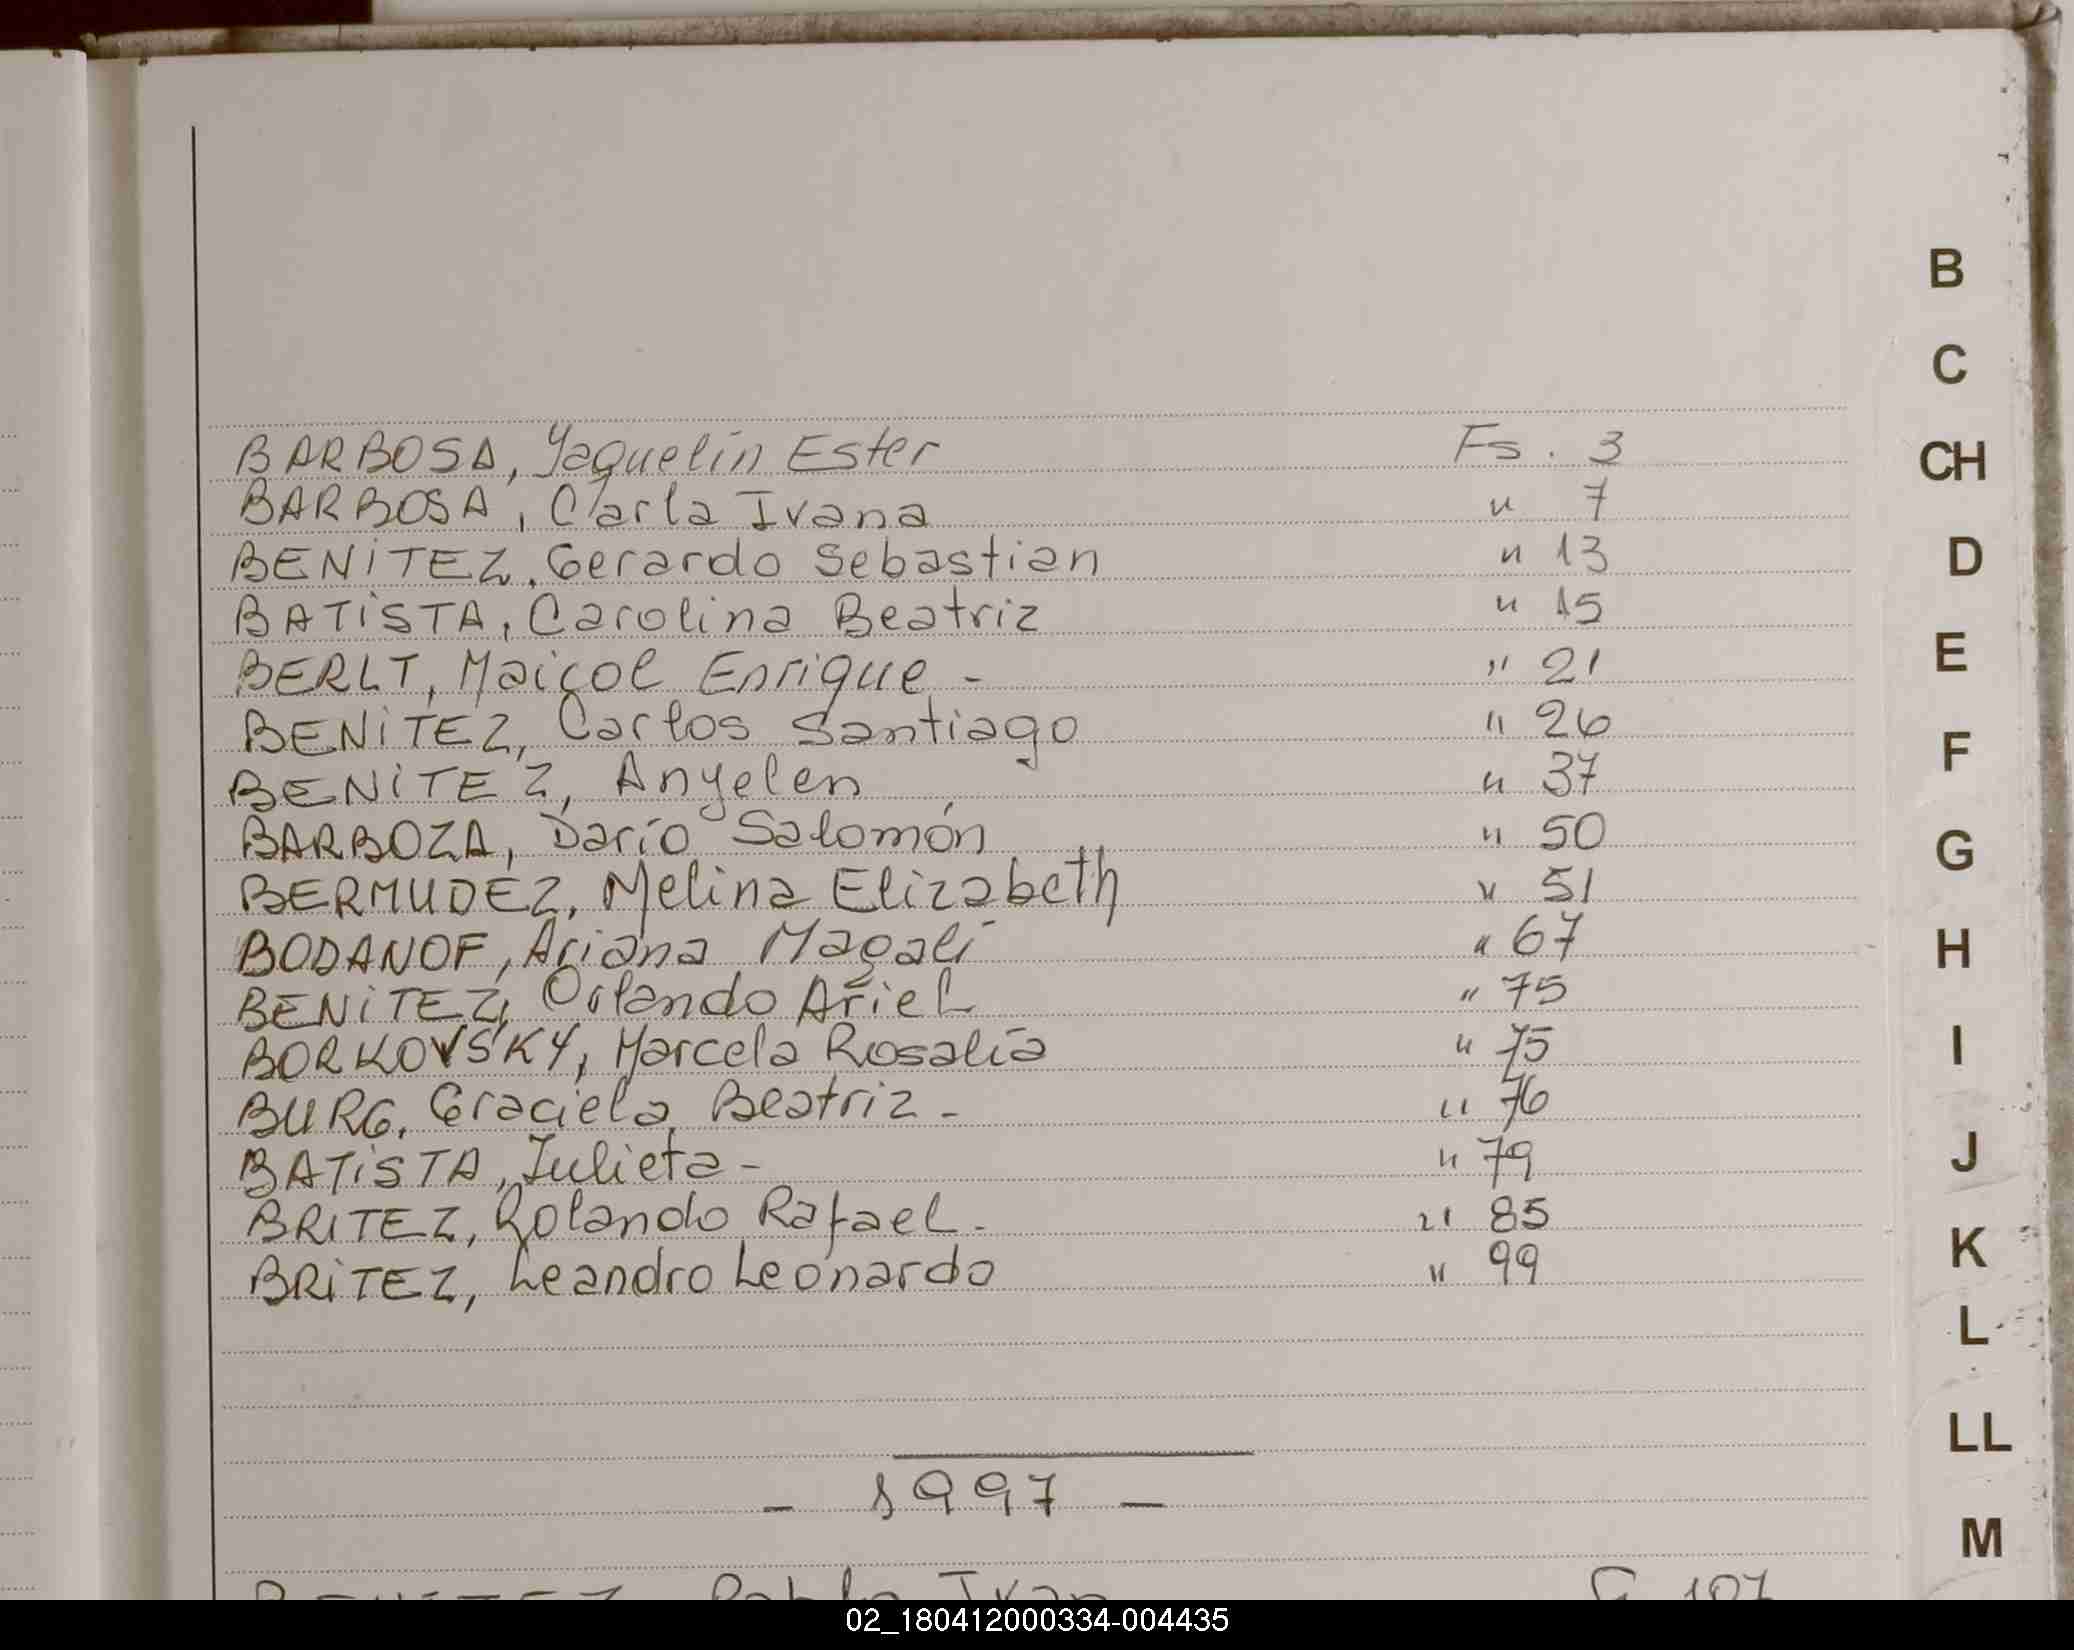 BARBOSA, Yaquelin Ester Fs. 3
BARBOSA, Carla Ivana " 7
BENITEZ, Gerardo Sebastian " 13
BATISTA, Carolina Beatriz " 15
BERLT, Maicol Enrique - " 21
BENITEZ, Carlos Santiago " 26
BENITEZ, Anyelen " 37
BARBOZA, Darío Salomón " 50
BERMUDEZ, Melina Elizabeth " 51
BODANOF, Ariana Magalí " 67
BENITEZ, Orlando Ariel " 75
BORKOVSKY, Marcela Rosalía " 75
BURG, Graciela Beatriz - " 76
BATISTA, Julieta - " 79
BRITEZ, Rolando Rafael - " 85
BRITEZ, Leandro Leonardo " 99
- 1997 -
BENITEZ Pablo Ivan 107
B
C
CH
D
E
F
G
H
I
J
K
L
LL
M
02_180412000334-004435